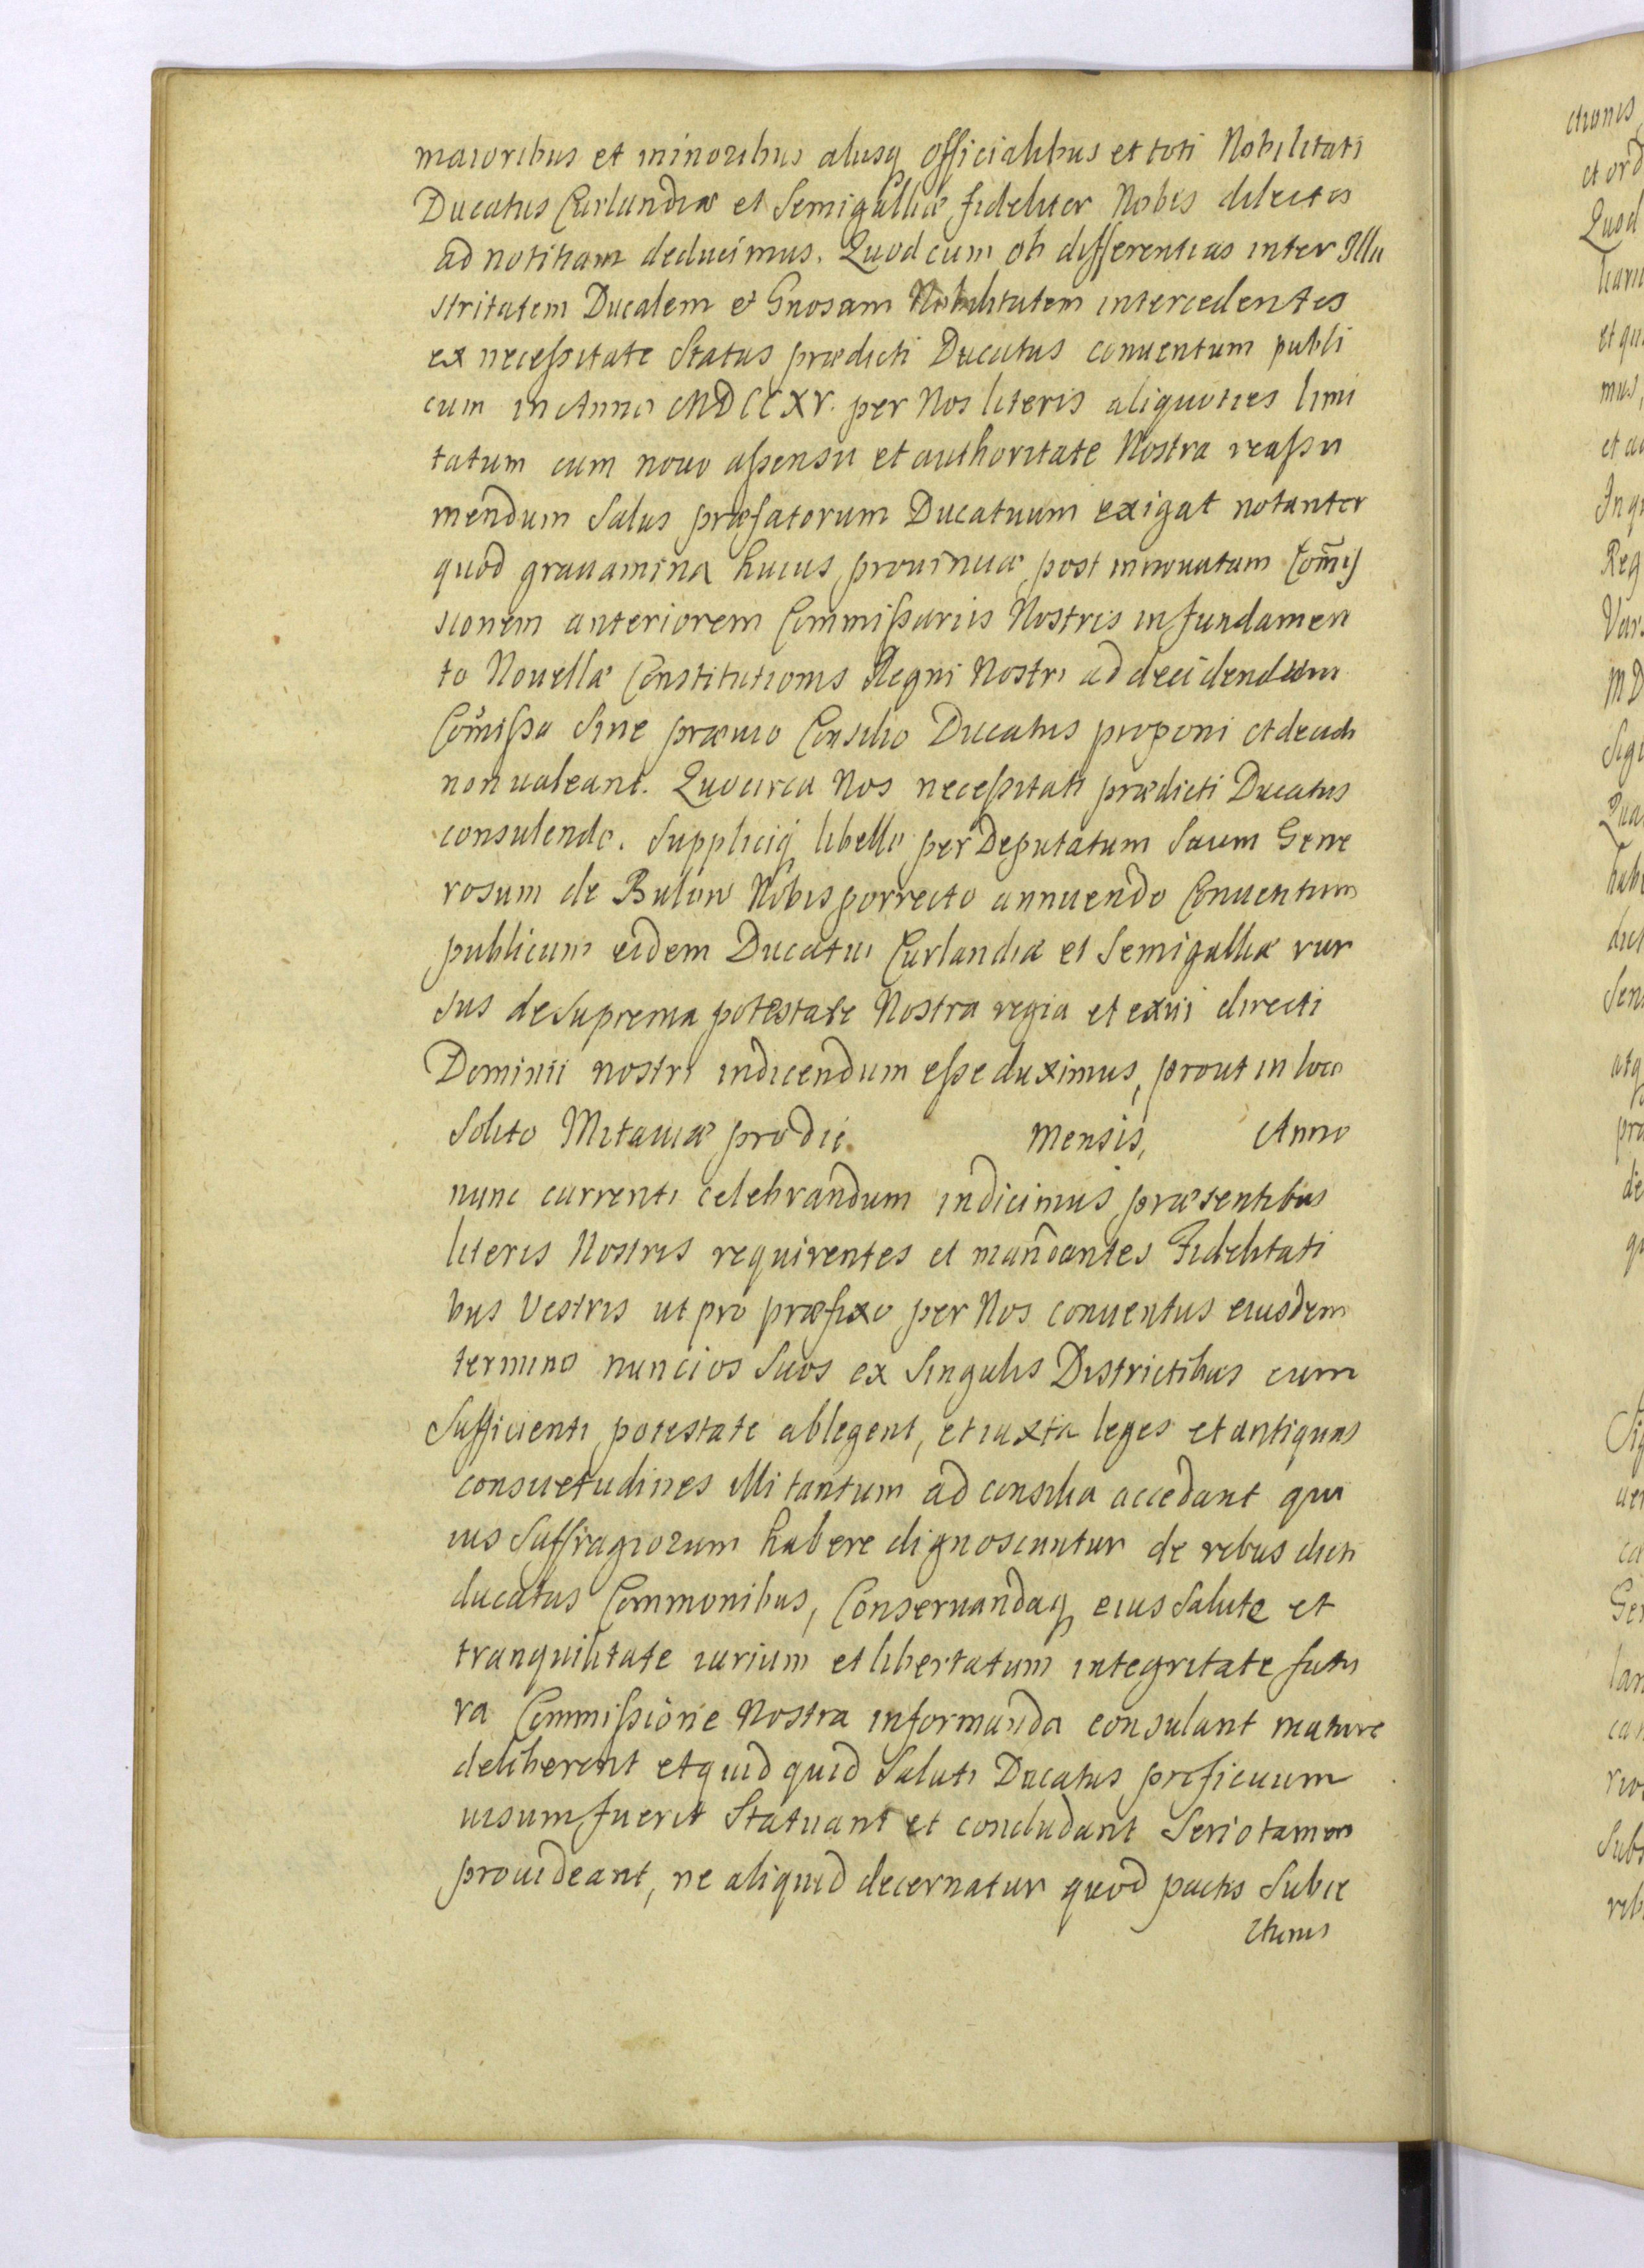 maioribus et minoribus aliisq officialibus et toti Nobilitati
Ducatus Curlandiæ et Semigalliæ fideliter Nobis dilectis
ad notitiam deducimus. Quod cum ob differentias inter Illu
stritatem Ducalem et Gnosam Nobilitatem intercedentes
ex necessitate Status prædicti Ducatus conuentum publi
cum in Anno MDCCXV. per Nos literis aliquoties limi
tatum cum nouo assensu et authoritate Nostra reassu
mendum Salus præfatorum Ducatuum exigat notanter
quod grauamina huius prouinciæ post innouatam Com̃is
sionem anteriorem Commissariis Nostris in fundamen
to Nouellæ Constitutionis Regni Nostri ad decidendum
Com̃issa sine præuio Consilio Ducatus proponi et decidi
non ualeant. Quocirca Nos necessitati prædicti Ducatus
consulendo. Suppliciq libello per Deputatum Suum Gene
rosum de Bulow Nobis porrecto annuendo Conuentum
publicum eidem Ducatui Curlandiæ et Semigalliæ rur
sus de Suprema potestate Nostra regia et exui directi
Dominii nostri indicendum esse duximus, prout in loco
Solito Mitauiæ pro die mensis, Anno
nunc currenti celebrandum indicimus præsentibus
literis Nostris requirentes et mandantes Fidelitati
bus Vestris ut pro præfixo per Nos conuentus eiusdem
termino nuncios Suos ex Singulis Districtibus cum
Sufficienti potestate ablegent, et iuxta leges et antiquas
consuetudines illi tantum ad consilia accedant qui
ius Suffragiorum habere dignoscuntur de rebus dicti
ducatus Commonibus, Conseruandaq eius Salute et
tranquilitate iurium et libertatum integritate futu
ra Commissione Nostra informanda consulant mature
deliberent et quid quid Saluti Ducatus proficuum
uisum fuerit Statuant et concludant Serio tamen
prouideant, ne aliquid decernatur quod pactis Subie
ctionis